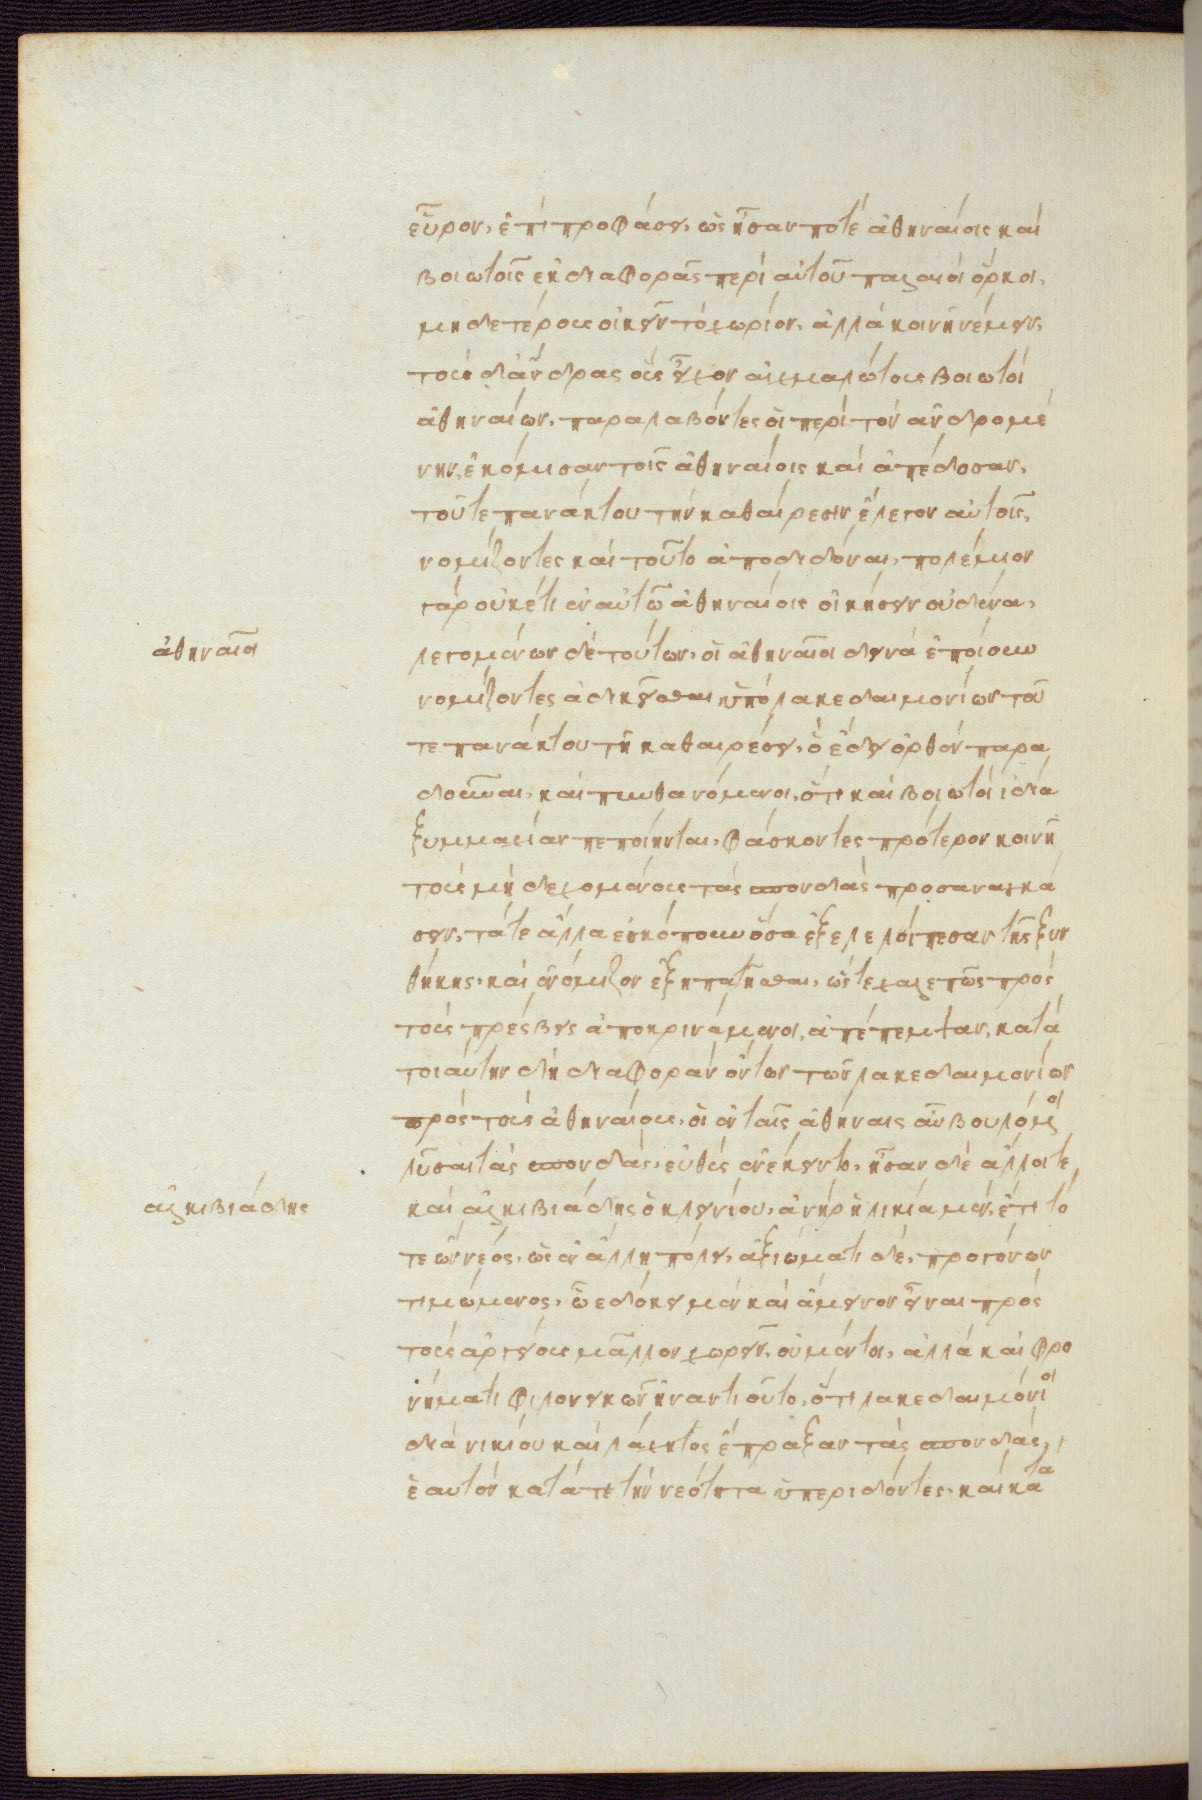 εὗρον, ἐπὶ προφάσει, ὡς ἦσαν ποτὲ ἀθηναίοις καὶ
βοιωτοῖς ἐκ διαφορᾶς περὶ αὐτοῦ παλαιοὶ ὅρκοι,
μηδετέρους οἰκεῖν τὸ χωρίον, ἀλλὰ κοινῇ νέμειν,
τοὺς δ' ἄνδρας οὓς εἶχον αἰχμαλώτους βοιωτοὶ
ἀθηναίων, παραλαβόντες οἱ περὶ τὸν ἀνδρομέ
νην, ἐκόμισαν τοῖς ἀθηναίοις καὶ ἀπέδοσαν,
τοῦ τε πανάκτου τὴν καθαίρεσιν ἔλεγον αὐτοῖς,
νομίζοντες καὶ τοῦτο ἀποδιδόναι, πολέμιον
γὰρ οὐκέτι ἐν αὐτῷ ἀθηναίοις οἰκήσειν οὐδένα,
ἀθηναῖοι
λεγομένων δὲ τούτων, οἱ ἀθηναῖοι δεινὰ ἐποίουν
νομίζοντες ἀδικεῖσθαι ὑπὸ λακεδαιμονίων τοῦ
τε πανάκτου τῇ καθαιρέσει, ὃ ἔδει ὀρθὸν παρα
δοῦναι, καὶ πυνθανόμενοι, ὅτι καὶ βοιωτοῖ ἰδίᾳ
ξυμμαχίαν πεποίηνται, φάσκοντες πρότερον κοινῇ
τοὺς μὴ δεχομένους τὰς σπονδὰς προσαναγκά
σειν, τά τε ἄλλα ἐσκόπουν ὅσα ἐξελελοίπεσαν τῆς ξυν
θήκης, καὶ ἐνόμιζον ἐξηπατῆσθαι, ὥστε χαλεπῶς πρὸς
τοὺς πρέσβεις ἀποκρινάμενοι, ἀπέπεμψαν, κατὰ
τοιαύτην δὴ διαφορὰν ὄντων τῶν λακεδαιμονίων
πρὸς τοὺς ἀθηναίους, οἱ ἐν ταῖς ἀθήναις αὖ βουλόμενοι
λῦσαι τὰς σπονδὰς, εὐθὺς ἐνέκειντο, ἦσαν δὲ ἄλλοι τε
ἀλκιβιάδης
καὶ ἀλκιβιάδης ὁ κλεινίου, ἀνὴρ ἡλικίᾳ μὲν, ἔτι τό
τε ὢν νέος, ὡς ἐν ἄλλῃ πόλει, ἀξιώματι δὲ, προγόνων
τιμώμενος, ᾧ ἐδόκει μὲν καὶ ἄμεινον εἶναι πρὸς
τοὺς ἀργείους μᾶλλον χωρεῖν, οὐ μέντοι, ἀλλὰ καὶ φρο
νήματι φιλονεικῶν ἠναντιοῦτο, ὅτι λακεδαιμόνιοι
διὰ νικίου καὶ λάχητος ἔπραξαν τὰς σπονδὰς,
ἑαυτὸν κατά τε τὴν νεότητα ὑπεριδόντες, καὶ κατὰ